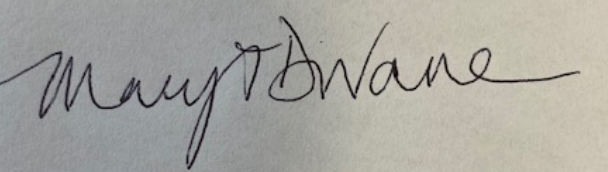 Mary T DiVane